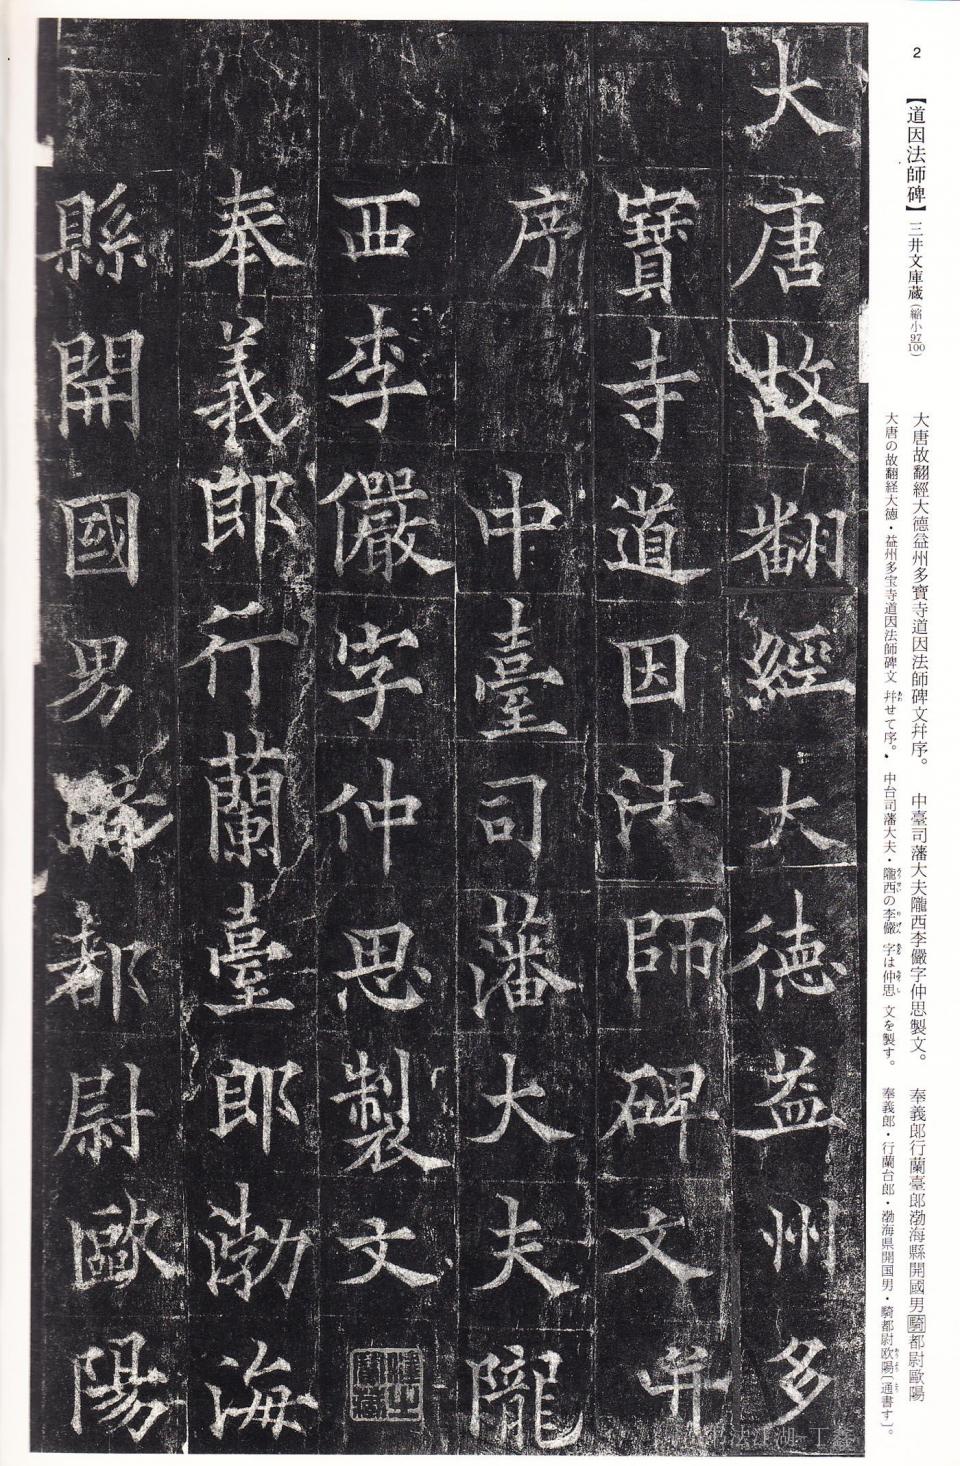 2
【道因法師碑】三井文庫蔵（縮小97/100）
大唐故翻經大德益州多寶寺道因法師碑文幷序。 中臺司藩大夫隴西李儼字仲思製文。 奉義郎行蘭臺郎渤海縣開國男騎都尉歐陽
大唐の故翻経大徳・益州多宝寺道因法師碑文 幷せて序。 中台司藩大夫・隴西の李儼 字は仲思 文を製す。 奉義郎・行蘭台郎・渤海県開国男・騎都尉欧陽〔通書す〕。
大唐故翻經大德益州多
寶寺道因法師碑文幷
序 中臺司藩大夫隴
西李儼字仲思製文
奉義郎行蘭臺郎渤海
縣開國男騎都尉歐陽
书法江湖